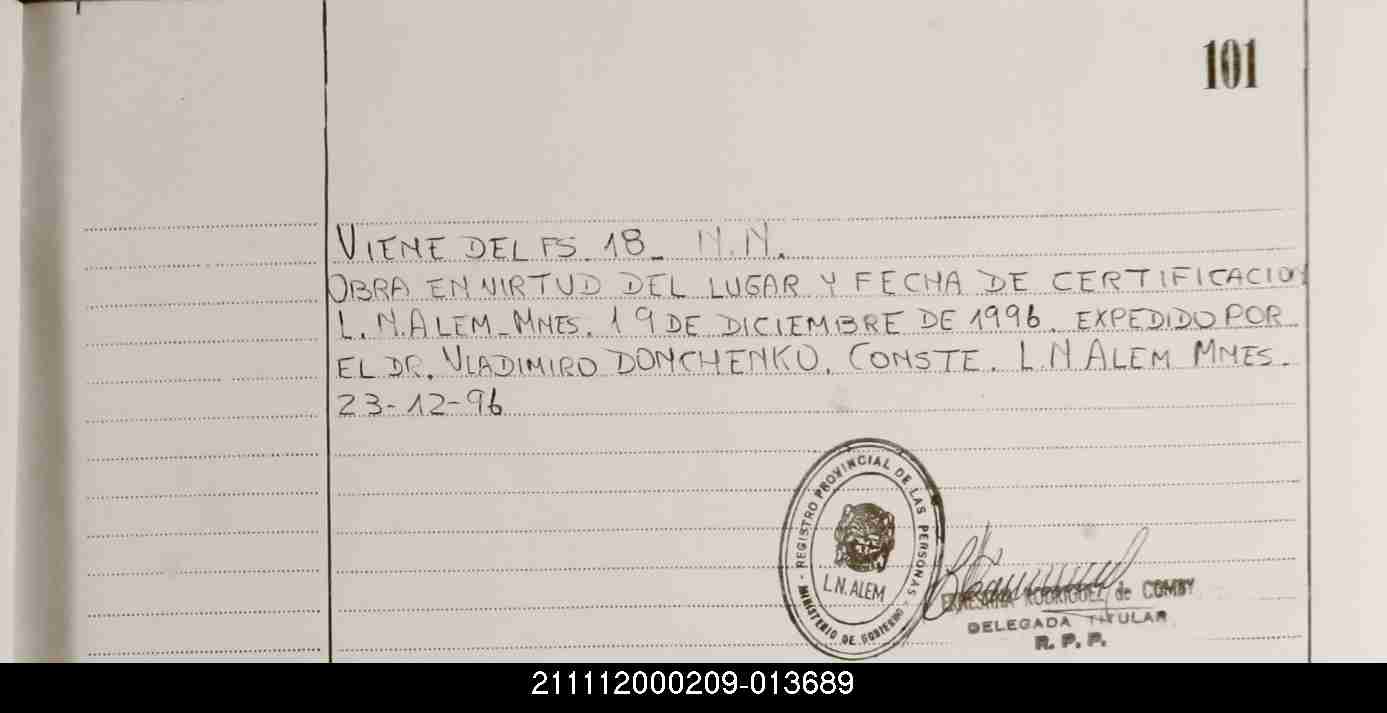 101
VIENE DEL FS. 18_ N.N.
OBRA EN VIRTUD DEL LUGAR Y FECHA DE CERTIFICACION
L.N.ALEM_MNES. 19 DE DICIEMBRE DE 1996. EXPEDIDO POR
EL DR. VLADIMIRO DONCHENKO. CONSTE. L.N ALEM MNES.
23-12-96
REGISTRO PROVINCIAL DE LAS PERSONAS -
L.N. ALEM
MINISTERIO DE GOBIERNO
RODRIGUEZ de COMBY
DELEGADA TITULAR
R. P. P.
211112000209-013689